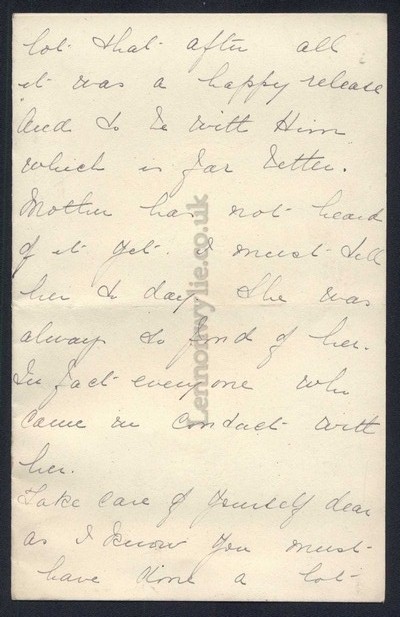 lot that after all
it was a happy release
And to be with Him
which is far better.
Mother has not heard
of it yet. I must tell
her to day She was
always so fond of her.
In fact everyone who
came in contact with
her.
Take care of yourself dear
as I know you must
have done a lot
Lennonwylie.co.uk